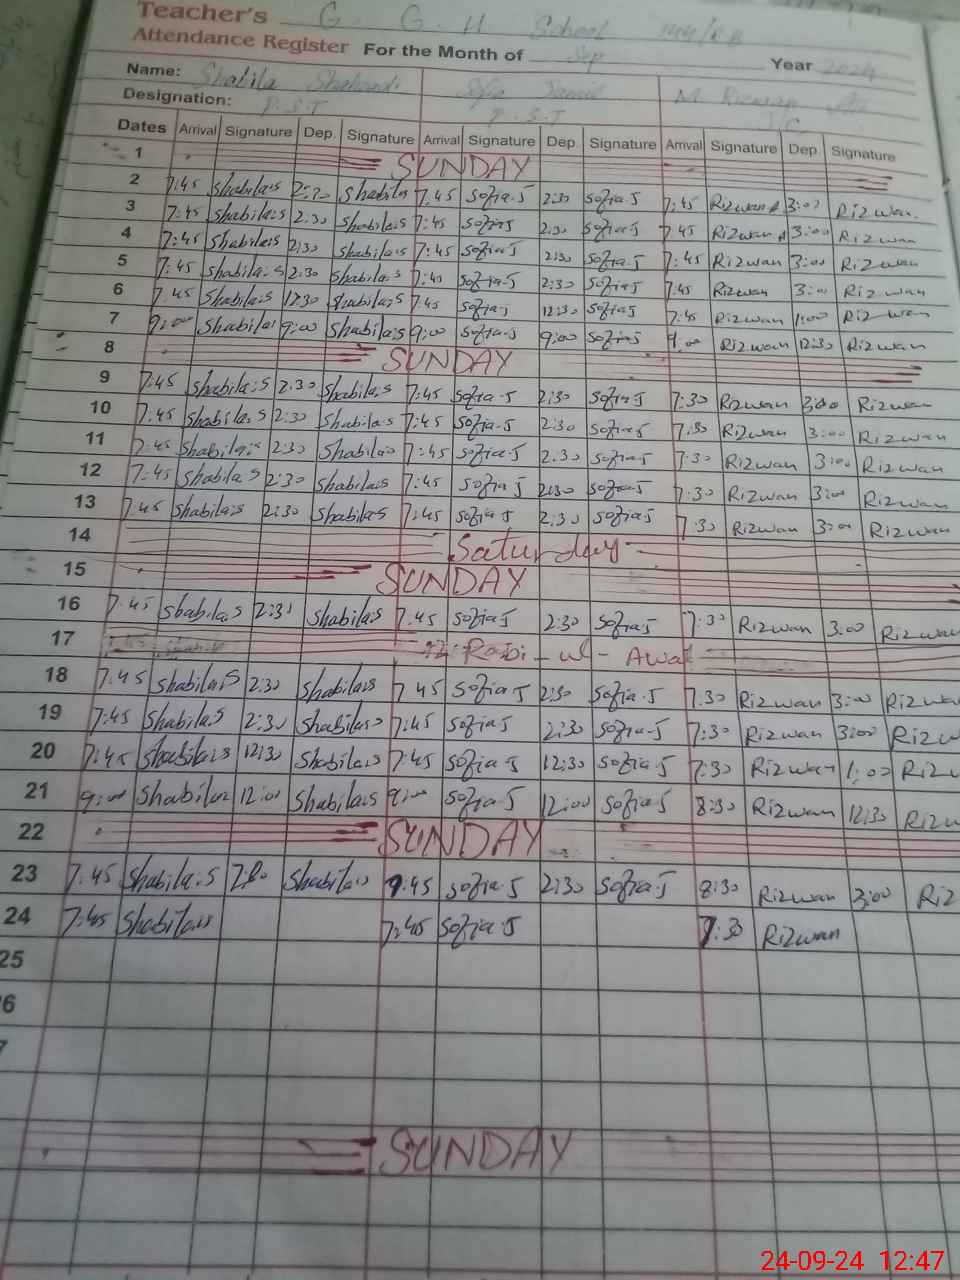 Teacher's G. G. H School
Attendance Register For the Month of Sep Year 2024
Name: Shabila Sofia M. Rizwan
Designation: P.S.T P.S.T
Dates Arrival Signature Dep. Signature Arrival Signature Dep. Signature Arrival Signature Dep. Signature
1 SUNDAY
2 7:45 Shabila.s Shabila 7:45 Sofia.J 2:30 Sofia.J 7:45 Rizwan A Rizwan
3 7:45 Shabila.s 2:30 Shabila.s 7:45 Sofia.J 2:30 Sofia.J 7:45 Rizwan A 3:00 Rizwan
4 7:45 Shabila.s 2:30 Shabila.s 7:45 Sofia.J 2:30 Sofia.J 7:45 Rizwan 3:00 Rizwan
5 7:45 Shabila.s 2:30 Shabila.s 7:45 Sofia.J 2:30 Sofia.J 7:45 Rizwan 3:00 Rizwan
6 7:45 Shabila.s 12:30 Shabila.s 7:45 Sofia.J 12:30 Sofia.J 7:45 Rizwan 1:00 Rizwan
7 9:00 Shabila.s 9:00 Shabila.s 9:00 Sofia.J 9:00 Sofia.J 9:00 Rizwan 12:30 Rizwan
8 SUNDAY
9 7:45 Shabila.s 2:30 Shabila.s 7:45 Sofia.J 2:30 Sofia.J 7:30 Rizwan 3:00 Rizwan
10 7:45 Shabila.s 2:30 Shabila.s 7:45 Sofia.J 2:30 Sofia.J 7:30 Rizwan 3:00 Rizwan
11 7:45 Shabila.s 2:30 Shabila.s 7:45 Sofia.J 2:30 Sofia.J 7:30 Rizwan 3:00 Rizwan
12 7:45 Shabila.s 2:30 Shabila.s 7:45 Sofia.J 2:30 Sofia.J 7:30 Rizwan 3:00 Rizwan
13 7:45 Shabila.s 2:30 Shabila.s 7:45 Sofia.J 2:30 Sofia.J 7:30 Rizwan 3:00 Rizwan
14 Saturday
15 SUNDAY
16 7:45 Shabila.s 2:30 Shabila.s 7:45 Sofia.J 2:30 Sofia.J 7:30 Rizwan 3:00 Rizwan
17 12 Rabi-ul-Awal
18 7:45 Shabila.s 2:30 Shabila.s 7:45 Sofia.J 2:30 Sofia.J 7:30 Rizwan 3:00 Rizwan
19 7:45 Shabila.s 2:30 Shabila.s 7:45 Sofia.J 2:30 Sofia.J 7:30 Rizwan 3:00 Rizw
20 7:45 Shabila.s 12:30 Shabila.s 7:45 Sofia.J 12:30 Sofia.J 7:30 Rizwan 1:00 Rizw
21 9:00 Shabila.s 12:00 Shabila.s 9:00 Sofia.J 12:00 Sofia.J 8:30 Rizwan 12:30 Rizw
22 SUNDAY
23 7:45 Shabila.s Shabila.s 9:45 Sofia.J 2:30 Sofia.J 8:30 Rizwan 3:00 Riz
24 7:45 Shabila.s 7:45 Sofia.J 7:30 Rizwan
25
6
7
SUNDAY
24-09-24 12:47